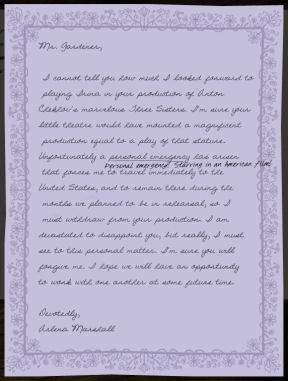 Mr. Gardener,
I cannot tell you how much I looked forward to
playing Irina in your production of Anton
Chekhov's marvelous Three Sisters. I'm sure your
little theatre would have mounted a magnificent
production equal to a play of that stature.
Unfortunately a personal emergency has arisen
Personal emergency? Starring in an American film!
that forces me to travel immediately to the
United States, and to remain there during the
months we planned to be in rehearsal, so I
must withdraw from your production. I am
devastated to disappoint you, but really, I must
see to this personal matter. I'm sure you will
forgive me. I hope we will have an opportunity
to work with one another at some future time.
Devotedly,
Arlena Marshall